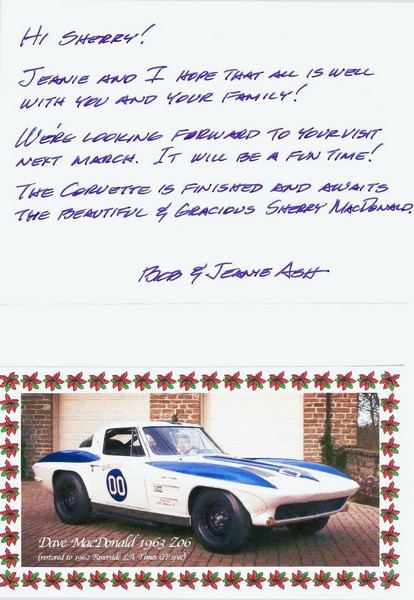 HI SHERRY!
JEANIE AND I HOPE THAT ALL IS WELL
WITH YOU AND YOUR FAMILY!
WE'RE LOOKING FORWARD TO YOUR VISIT
NEXT MARCH. IT WILL BE A FUN TIME!
THE CORVETTE IS FINISHED AND AWAITS
THE BEAUTIFUL & GRACIOUS SHERRY MACDONALD.
BOB & JEANIE ASH
00
Dave MacDonald 1963 Z06
(restored to 1962 Riverside L.A. Times GP spec)